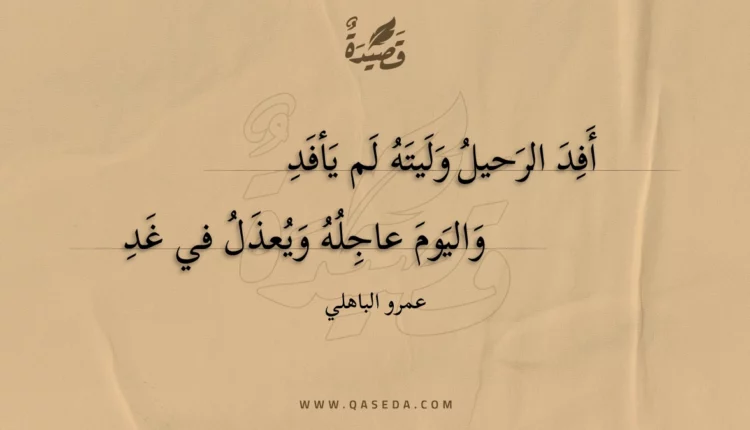 قَصِيدَةٌ
أَفِدَ الرَحيلُ وَلَيتَهُ لَم يَأفَدِ
وَاليَومَ عاجِلُهُ وَيُعذَلُ في غَدِ
عمرو الباهلي
WWW.QASEDA.COM